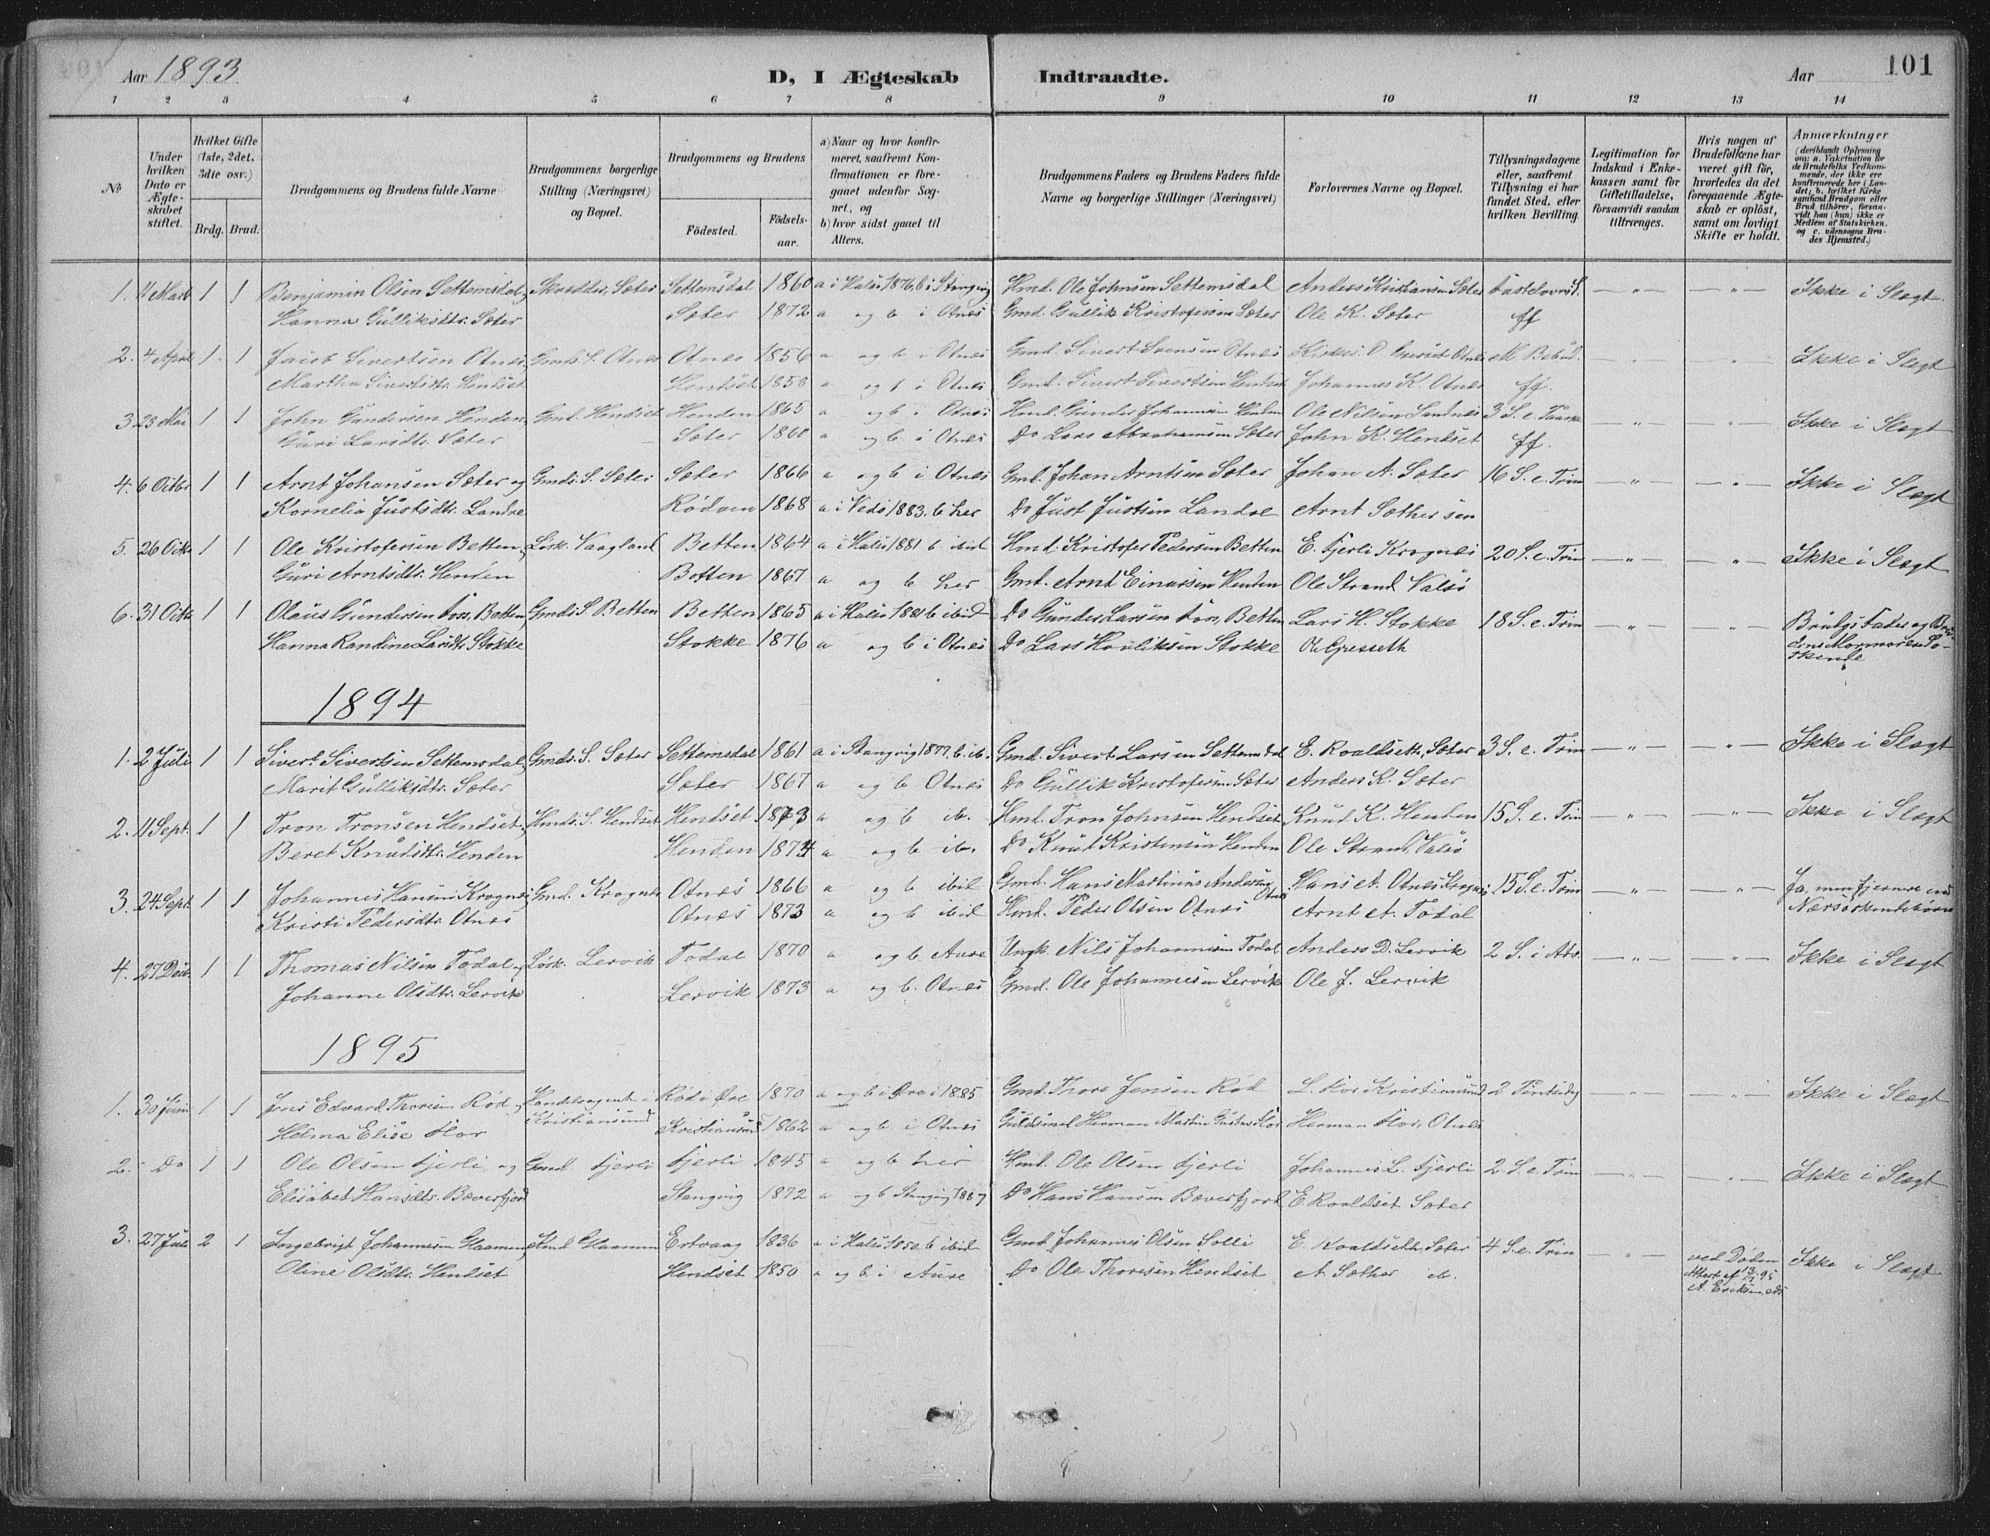 Aar 1893 D, I Ægteskab Indtraadte. Aar 101
1 2 3 4 5 6 7 8 9 10 11 12 13 14
No
Under hvilken Dato er Ægteskabet stiftet.
Hvilket Gifte (1ste, 2det, 3die osv.)
Brdg. Brud.
Brudgommens og Brudens fulde Navne
Brudgommens borgerlige Stilling (Næringsvei) og Bopæl.
Brudgommens og Brudens
Födested. Födsels-aar.
a) Naar og hvor konfirmeret, saafremt Konfirmationen er foregaaet udenfor Sognet, og
b) hvor sidst gaaet til Alters.
Brudgommens Faders og Brudens Faders fulde Navne og borgerlige Stillinger (Næringsvei)
Forlovernes Navne og Bopæl.
Tillysningsdagene eller, saafremt Tillysning ei har fundet Sted, efter hvilken Bevilling.
Legitimation for Indskud i Enkekassen samt for Giftetilladelse, forsaavidt saadan tiltrænges.
Hvis nogen af Brudefolkene har været gift før, hvorledes da det foregaaende Ægteskab er oplöst, samt om lovligt Skifte er holdt.
Anmærkninger
1. 1 1 Benjamin Olsen Settemsdal, Skrædder, Sæter Settemsdal 1860 a i Halså 1876, b i Stangvig Gmd. Ole Johnsen Settemsdal Anders Kristiansen Sæter Fastelavns S. — „ — — „ — Ikke i Slægt
Hanna Gulliksdtr. Sæter Sæter 1872 a og b i Otnes Gmd. Gullik Kristofersen Sæter Ole K. Sæter ff
2. 4 April 1 1 Jacob Sivertsen Otnes Gmds. S. Otnes Otnes 1856 a og b i Otnes Gmd. Sivert Svensen Otnes M. Bebud. Ikke i Slægt
Martha Sivertsdtr. Hendset Hendset 1858 a og b i Otnes Gmd. Sivert Sivertsen Hendset Johannes K. Otnes ff.
3. 23 Mai 1 1 John Gundersen Henden Gmd. Hendset Henden 1865 a og b i Otnes Hmd. Gunder Johannesen Henden Ole Nilsen Sandnes 3 S. e. Paaske — „ — Ikke i Slægt
Guri Larsdtr. Sæter Sæter 1860 a og b i Otnes Do Lars Abrahamsen Sæter John K. Hendset ff.
4. 6 Octbr 1 1 Arnt Johansen Sæter og Gmds. S. Sæter Sæter 1866 a og b i Otnes Gmd. Johan Arntsen Sæter Johan A. Sæter 16 S. e. Trin — „ — — „ — Ikke i Slægt
Kornelia Justsdtr. Landre Rødven 1868 a i Vedø 1883. b her Do Just Justsen Landre Arnt Sæther sen
5. 26 Octbr 1 1 Ole Kristofersen Betten, Løsk. Vaagland Betten 1864 a i Halså 1881 b ibid Hmd. Kristofer Pedersen Betten E. Fjerli Krognes 20 S. e. Trin — „ — — „ — Ikke i Slægt
Guri Arntsdtr. Henden Botten 1867 a og b her Gmd. Arnt Einarsen Henden Ole Strand Valsø
6. 31 Octbr 1 1 Olaus Gundersen Betten Gmds. S. Betten Betten 1865 a i Halså 1881 b ibid Do Gunder Larsen Betten Lars H. Stokke 18 S. e. Trin — „ — — „ — Brudgs Fader og Bru-
Hanna Randine Larsdtr. Stokke Stokke 1876 a og b i Otnes Do Lars Havliksen Stokke Ole Gjesseth dens Mormor ere Sø-
skende
1894
1. 2 Juli 1 1 Sivert Sivertsen Settemsdal, Gmds. S. Sæter Settemsdal 1861 a i Stangvig 1877. b. ib. Gmd. Sivert Larsen Settemsdal E. Roaldseth, Sæter 3 S. e. Trin — „ — — „ — Ikke i Slægt
Marit Gulliksdtr. Sæter Sæter 1867 a og b. Otnes Do Gullik Kristofersen Sæter Anders K. Sæter
2. 11 Sept. 1 1 Tron Tronsen Hendset. Hmds. S. Hendset Hendset 1873 a og b ib. Hmd. Tron Johnsen Hendset Knud K. Henden 15 S. e. Trin — „ — — „ — Ikke i Slægt
Beret Knudsdtr. Henden Henden 1874 a og b ib. Do Knut Kristensen Henden Ole Strand, Valsø
3. 24 Sept. 1 1 Johannes Hansen Krognes, Gmd. Krognes Otnes 1866 a og b ibid Gmd. Hans Martinus Andersen Otnes Hans A. Otnes Krognes 15 S. e. Trin — „ — — „ — Ja, men fjernere end
Kristi Pedersdtr. Otnes Otnes 1873 a og b ibid Hmd. Peder Olsen Otnes Arnt A. Todal Næssøskendebørn
4. 27 Decbr 1 1 Thomas Nilsen Todal og Løsk. Lervik Todal 1870 a og b Aure Ungk. Nils Johannesen Todal Anders D. Lervik 2 S. i Adv. — „ — — „ — Ikke i Slægt
Johanne Olsdtr. Lervik Lervik 1873 a og b. Otnes Gmd. Ole Johannesen Lervik Ole J. Lervik
1895
1. 30 Juni 1 1 Jens Edvard Thoresen Rød, Handelsagent i Rød i Øre 1870 a og b i Øre i 1885 Gmd. Thore Jensen Rød L. Hov Kristiansund 2 Pintsedg — „ — — „ — Ikke i Slægt
Helma Elise Hov Kristiansund Kristiansund 1862 a og b i Otnes Guldsmed Herman Martin Gustav Hov Herman Hov, Otnes
2. Do 1 1 Ole Olsen Fjerli og Gmd. Fjerli Fjerli 1845 a og b her Hmd. Ole Olsen Fjerli Johannes L. Fjerli 2 S. e. Trin — „ — — „ — Ikke i Slægt
Elisabet Hansdtr. Bæverfjord Stangvig 1872 a og b Stangvig 1887 Do Hans Hansen Bæverfjord E. Roaldset Sæter
3. 27 Juli 2 1 Ingebrigt Johannesen Glaamen, Kmd Glaamen Ertvaag 1836 a i Halså 1850. b ibid Gmd Johannes Olsen Solli E. Roaldseth Sæter 4 S. e. Trin — „ — ved Døden Ikke i Slægt
Oline Olsdtr. Hendset Hendset 1850 a og b. i Aure Do Ole Thoresen Hendset A. Sæther ib. Attest af 13/7 95